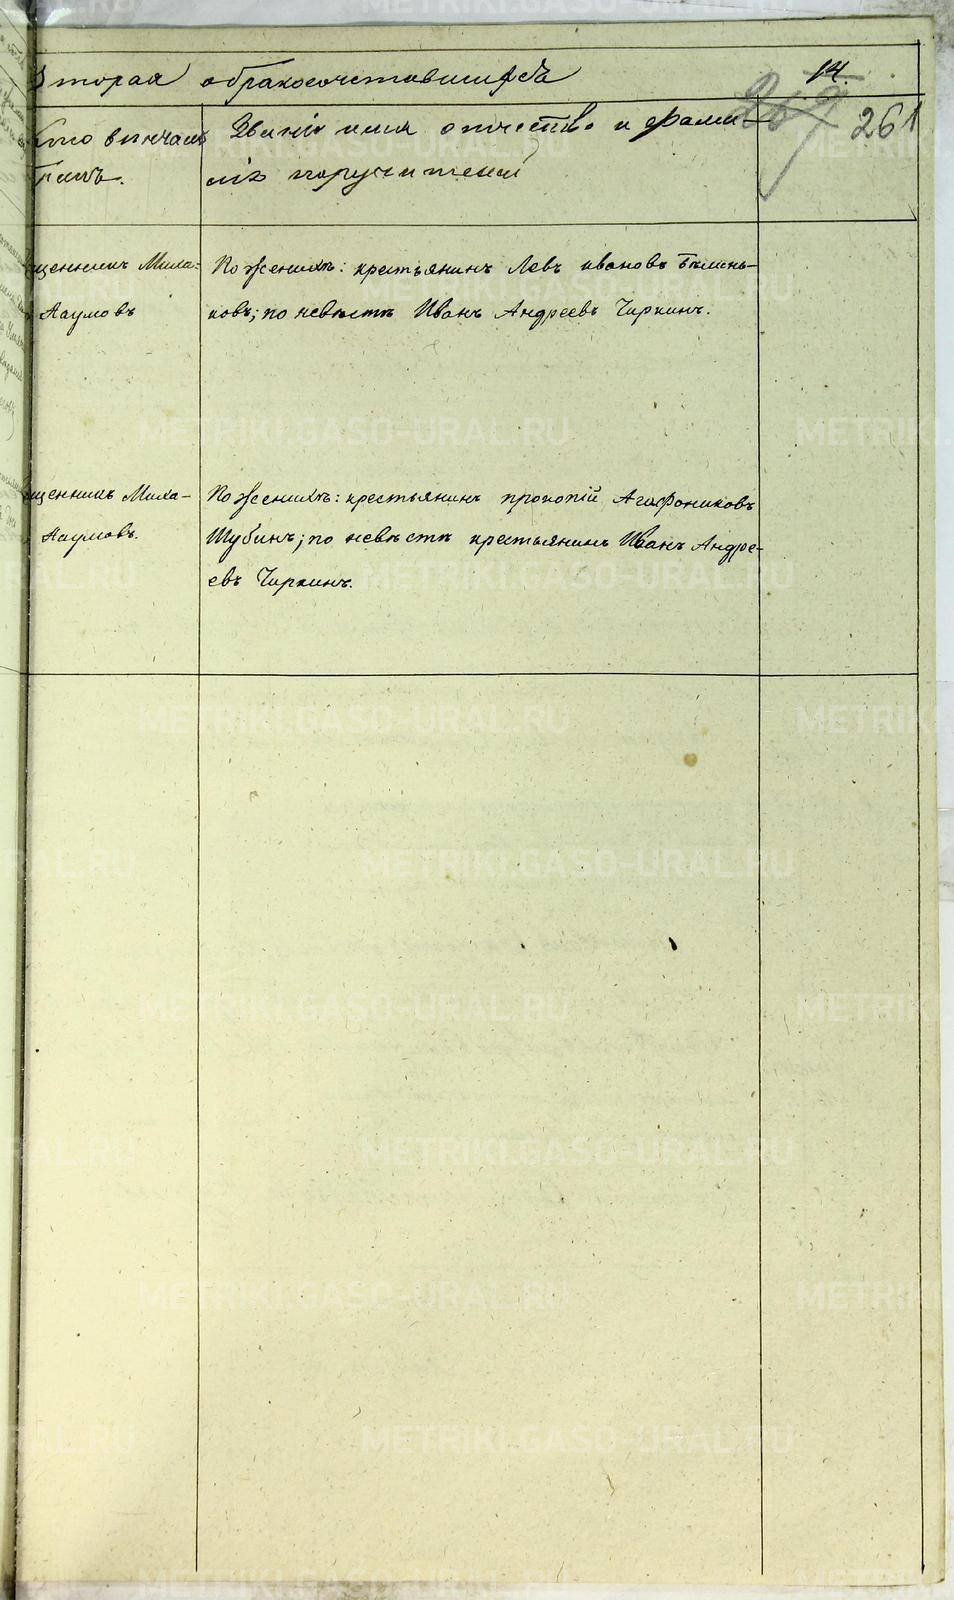 вторая о бракосочетавшихся
14.
267 261
Кто вѣнчалъ
бракъ.
Званіе имя отчество и фами-
лія поручителей
щенникъ Миха-
Наумовъ
По женихѣ: крестьянинъ Левъ Ивановъ Бѣлинь-
ковъ; по невѣстѣ Иванъ Андреевъ Чиркинъ.
щенникъ Миха-
Наумовъ.
По женихѣ: крестьянинъ Прокопій Агафониковъ
Шубинъ; по невѣстѣ крестьянинъ Иванъ Андре-
евъ Чиркинъ.
METRIKI.GASO-URAL.RU